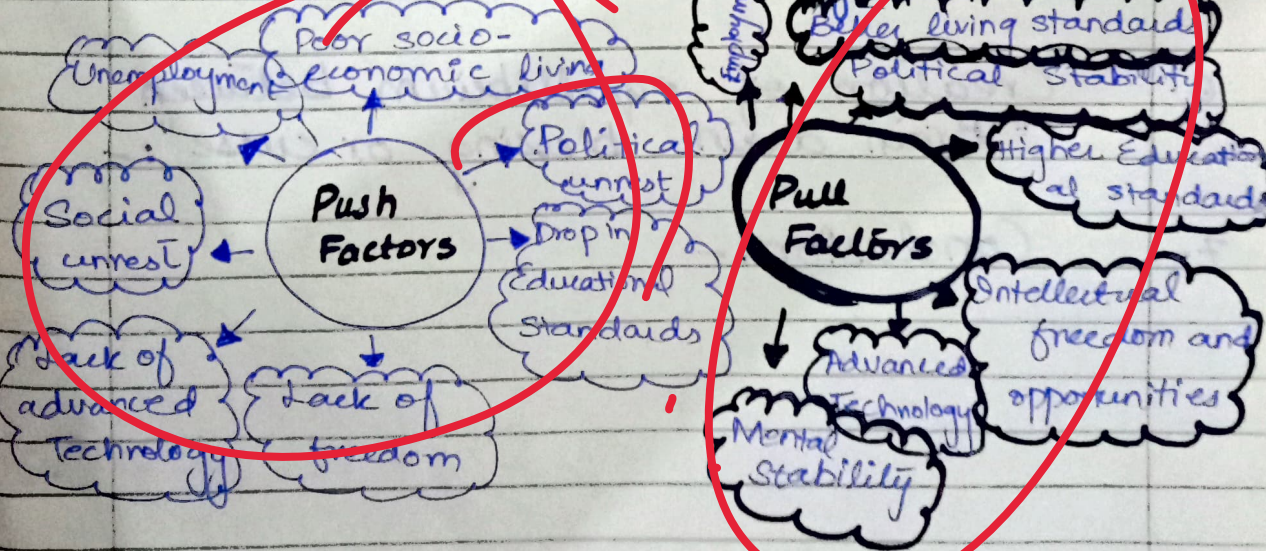 Poor socio-
economic living
Unemployment
Political
unrest
Social
unrest
Push
Factors
Drop in
Educational
Standards
Lack of
advanced
Technology
Lack of
freedom
Better living standards
Political Stability
Higher Education
al standards
Pull
Factors
Intellectual
freedom and
opportunities
Advanced
Technology
Mental
Stability